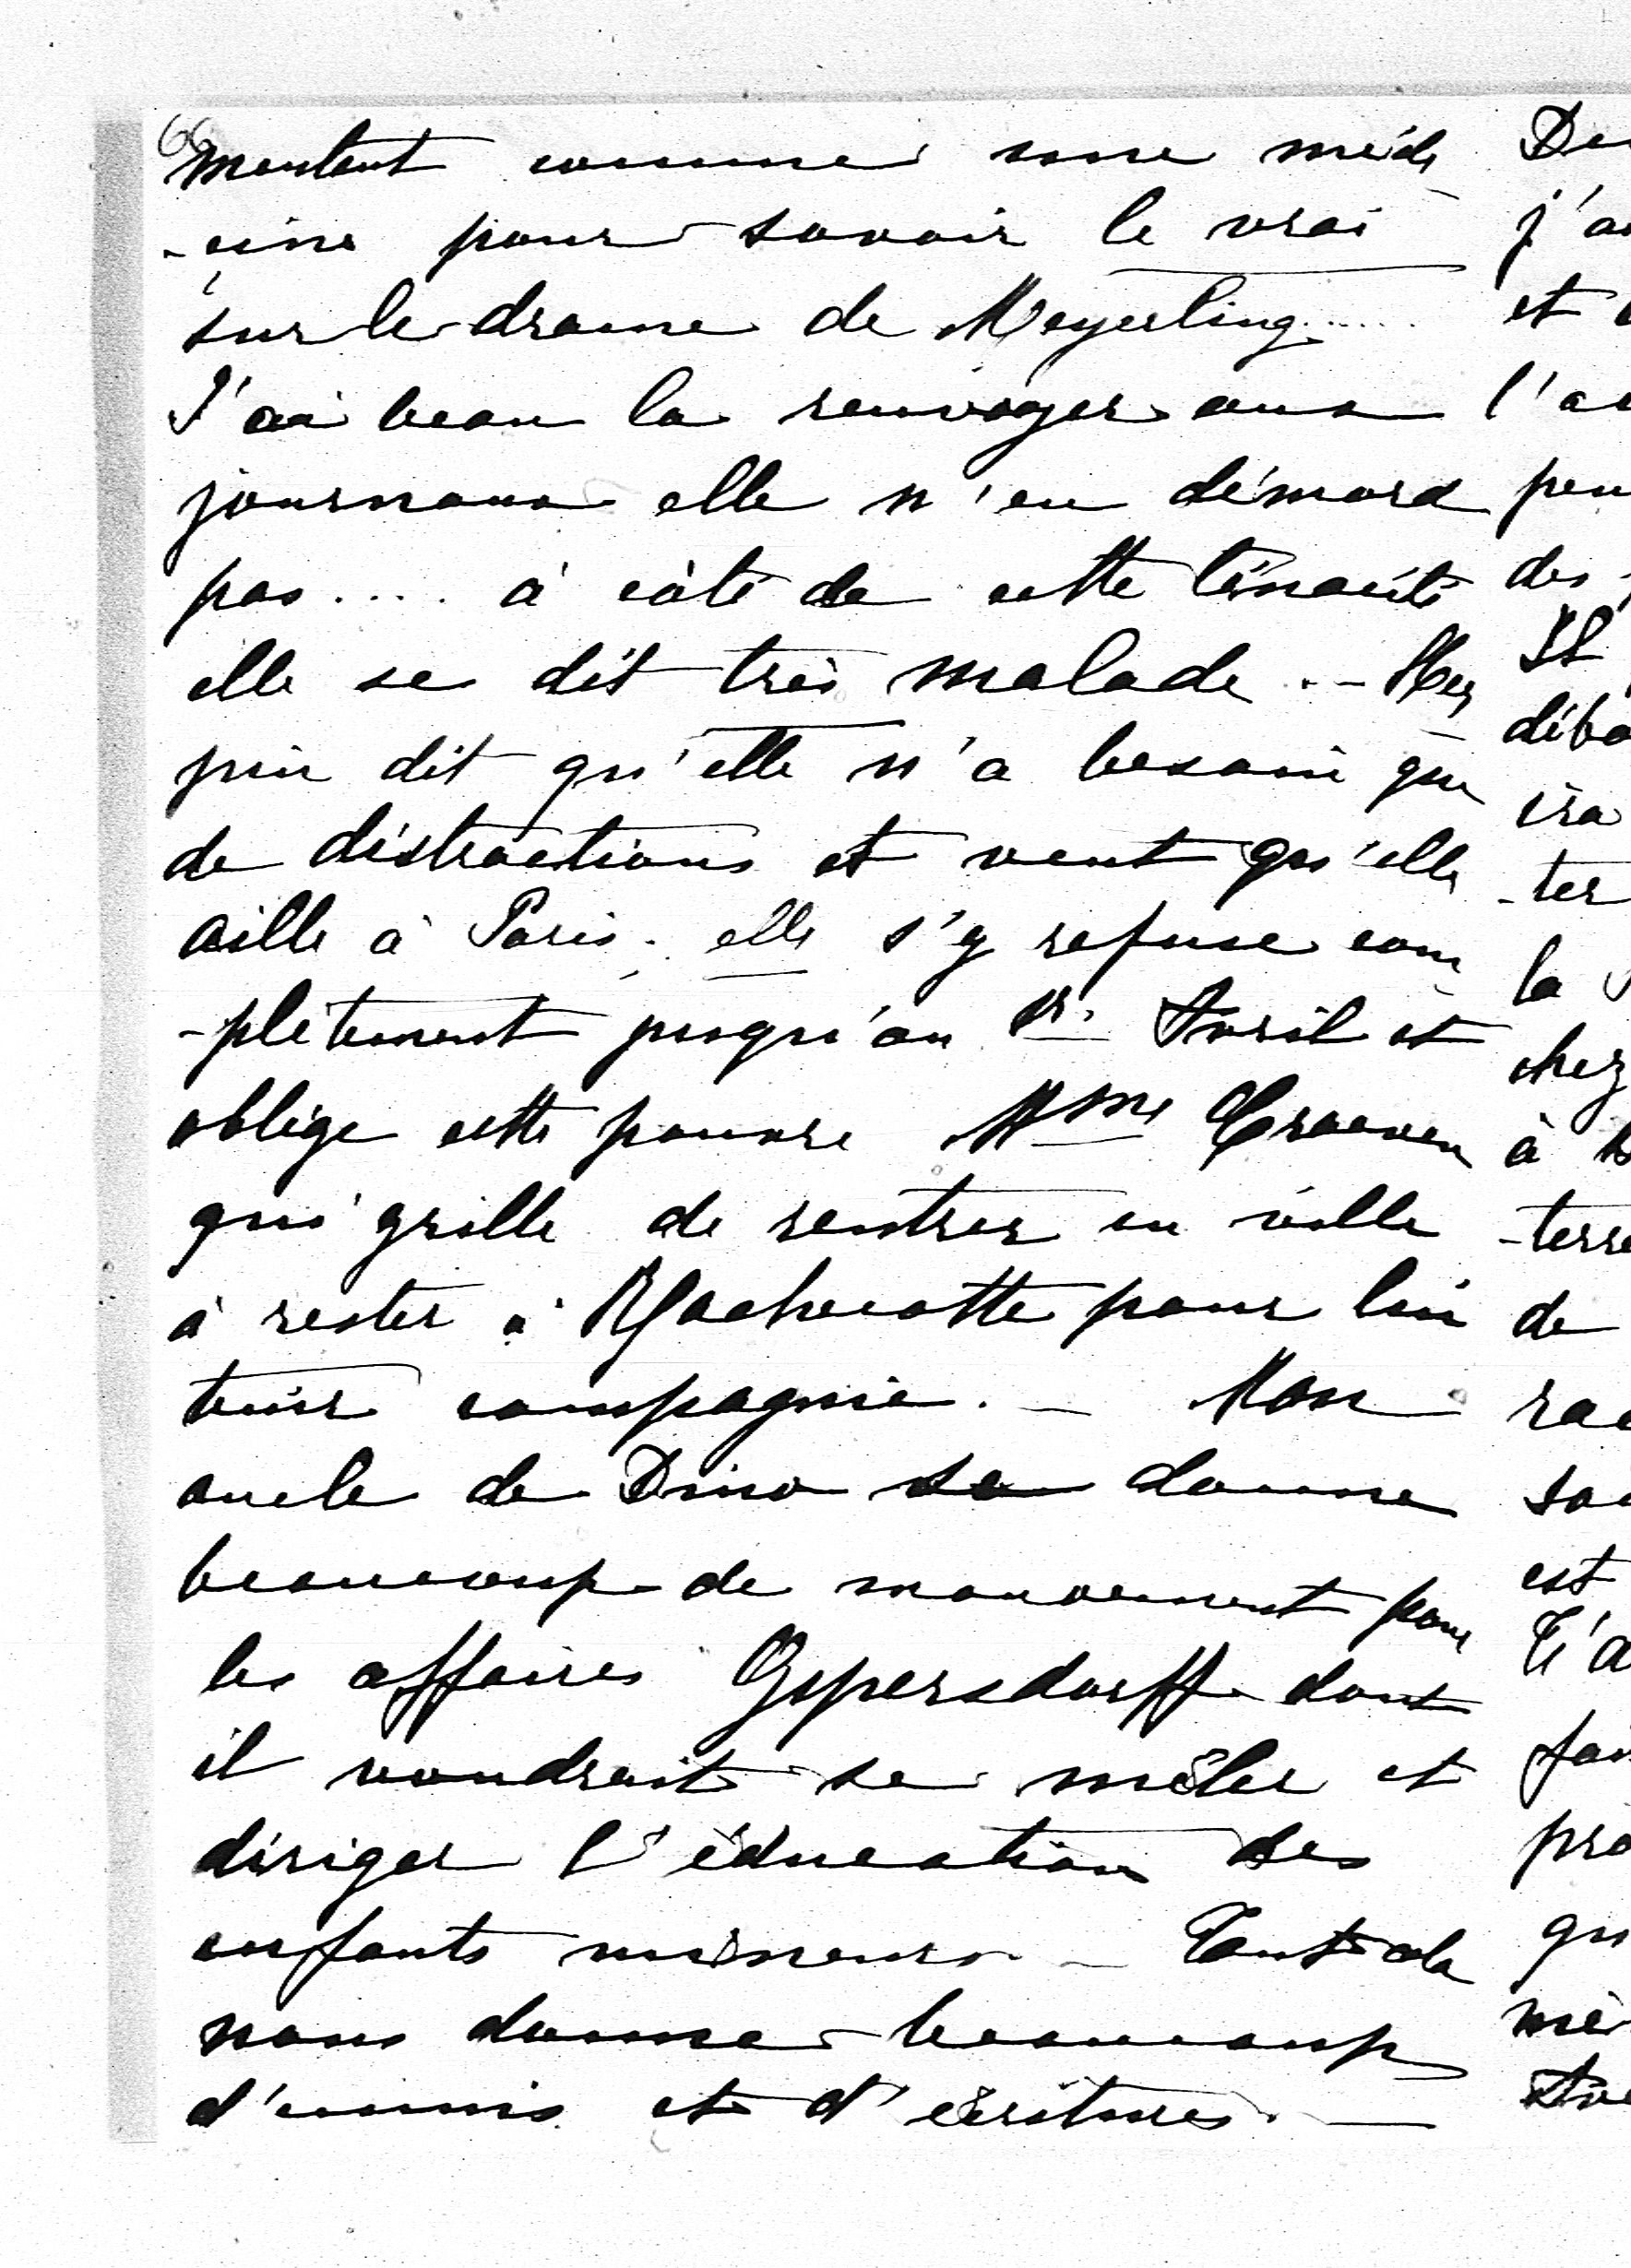 mentant comme une méde
-cine pour savoir le vrai
sur le drame de Meyerling.....
J'ai beau la renvoyer aux
journaux elle n'en démord
pas.... à côté de cette ténacité
elle se dit très malade. - Hes
pin dit qu'elle n'a besoin que
de distractions et veut qu'elle
aille à Paris. elle s'y refuse com
-plètement jusqu'au 1er Avril et
oblige cette pauvre Mme Craeven
qui grille de rentrer en ville
à rester à Rochecotte pour lui
tenir compagnie. - Mon
oncle de Dino se donne
beaucoup de mouvement pour
les affaires Oppersdorff dont
il voudrait se mêler et
diriger l'éducation des
enfants mineurs - Tout cela
nous donne beaucoup
d'ennuis et d'écritures. -
j'a
et
des
Il
ira
-ter
la
chez
à
-terre
de
est